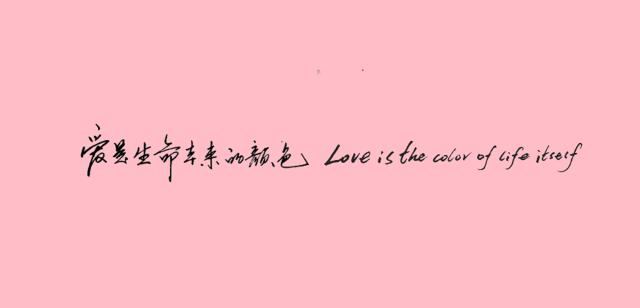 爱是生命本来的颜色 Love is the color of life itself